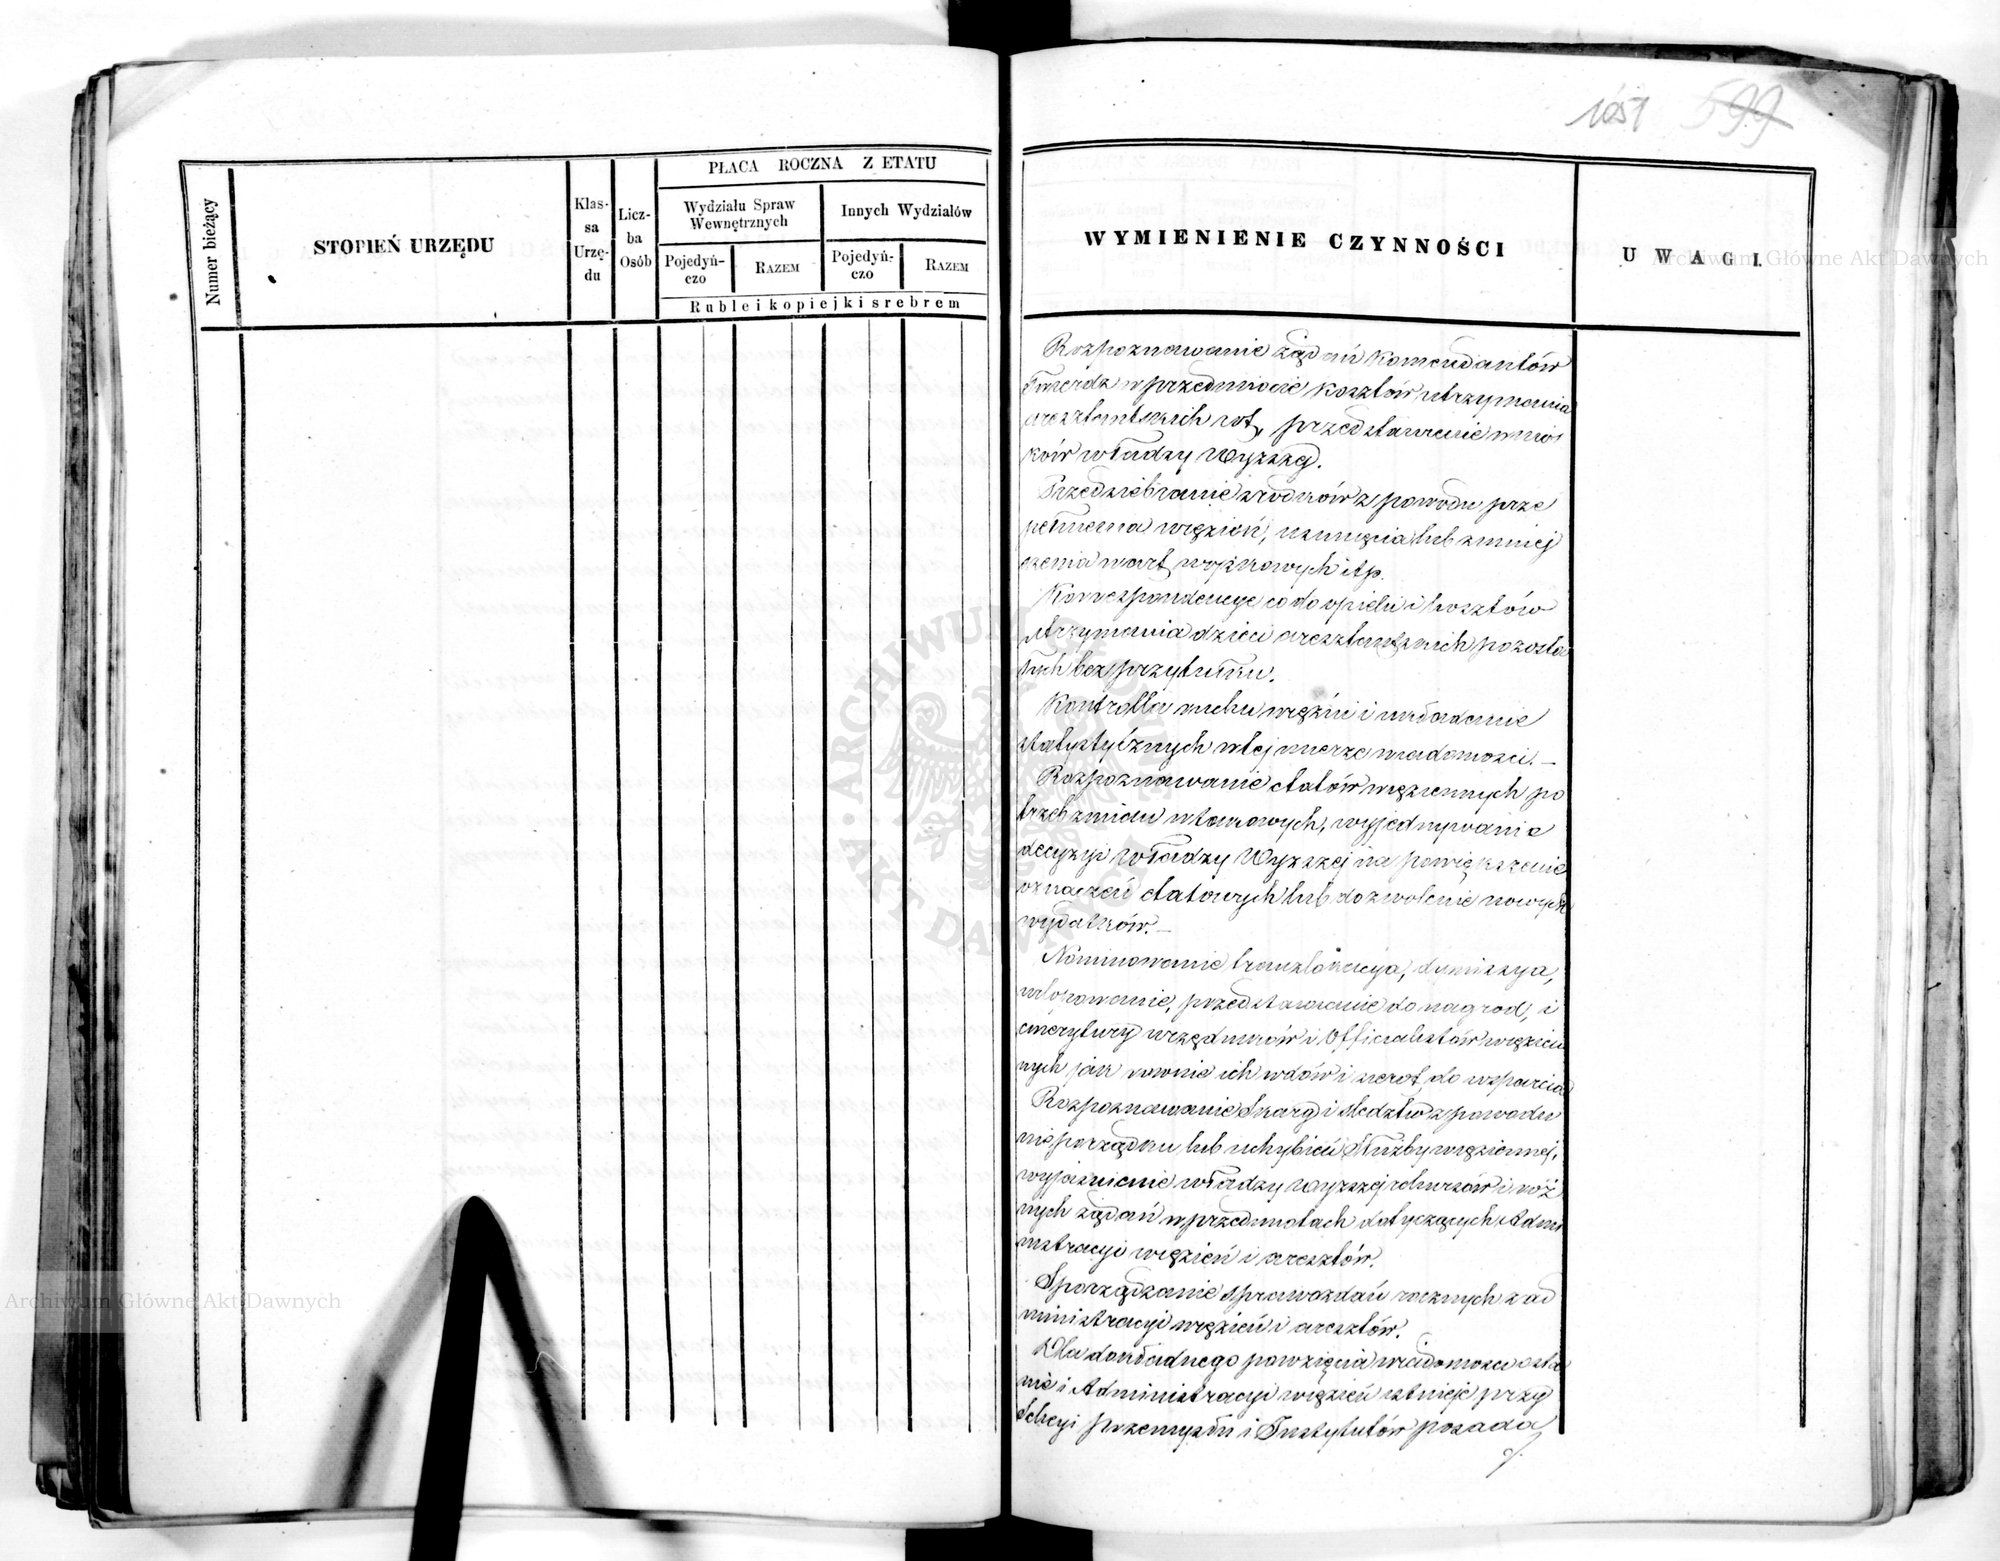 1051 599
PŁACA ROCZNA Z ETATU
Numer bieżący
STOPIEŃ URZĘDU
Klas-
sa
Urzę-
du
Licz-
ba
Osób
Wydziału Spraw
Wewnętrznych
Innych Wydziałów
Pojedyń-
czo
RAZEM
Pojedyń-
czo
RAZEM
Ruble i kopiejki srebrem
WYMIENIENIE CZYNNOŚCI
UWAGI.
Rozpoznawanie żądań Komendantów
Twierdz w przedmiocie kosztów utrzymania
aresztantskich rot, przedstawienie wnios
ków władzy Wyższej.
Przedsiebranie srodków z powodu prze
pełnienia więzień, usunięcia lub zmniej
szenia wart wojskowych itp.
Korrespondencye co do opieki i kosztów
utrzymania dzieci aresztantskich pozosta
łych bez przytułku.
Kontrolla ruchu więźni i układanie
statystycznych w tej mierze wiadomosci. —
Rozpoznawanie etatów więziennych po
trzeb zmian w takowych, wyjednywanie
decyzyi władzy Wyższej na powiększenie
oznaczeń etatowych lub dozwolenie nowych
wydatków. —
Nominowanie, translokacya, dymissya,
urlopowanie, przedstawianie do nagrod, i
emerytury urzędników i Officialistów więzien
nych jak rownie ich wdów i sierot do wsparcia
Rozpoznawanie skarg i sledztw z powodu
nieporządku lub uchybień Służby więziennej,
wyjasnienie władzy wyższej rekursów i róż
nych żądań w przedmiotach dotyczących Admi
nistracyi więzień i aresztów.
Sporządzanie sprawozdań rocznych z ad
ministracyi więzień i aresztów.
Dla dokładnego powzięcia wiadomosci o sta
nie i Administracyi więzień istnieje przy
Sekcyi Przemysłu i Instytutów posada
Archiwum Główne Akt Dawnych
Archiwum Główne Akt Dawnych